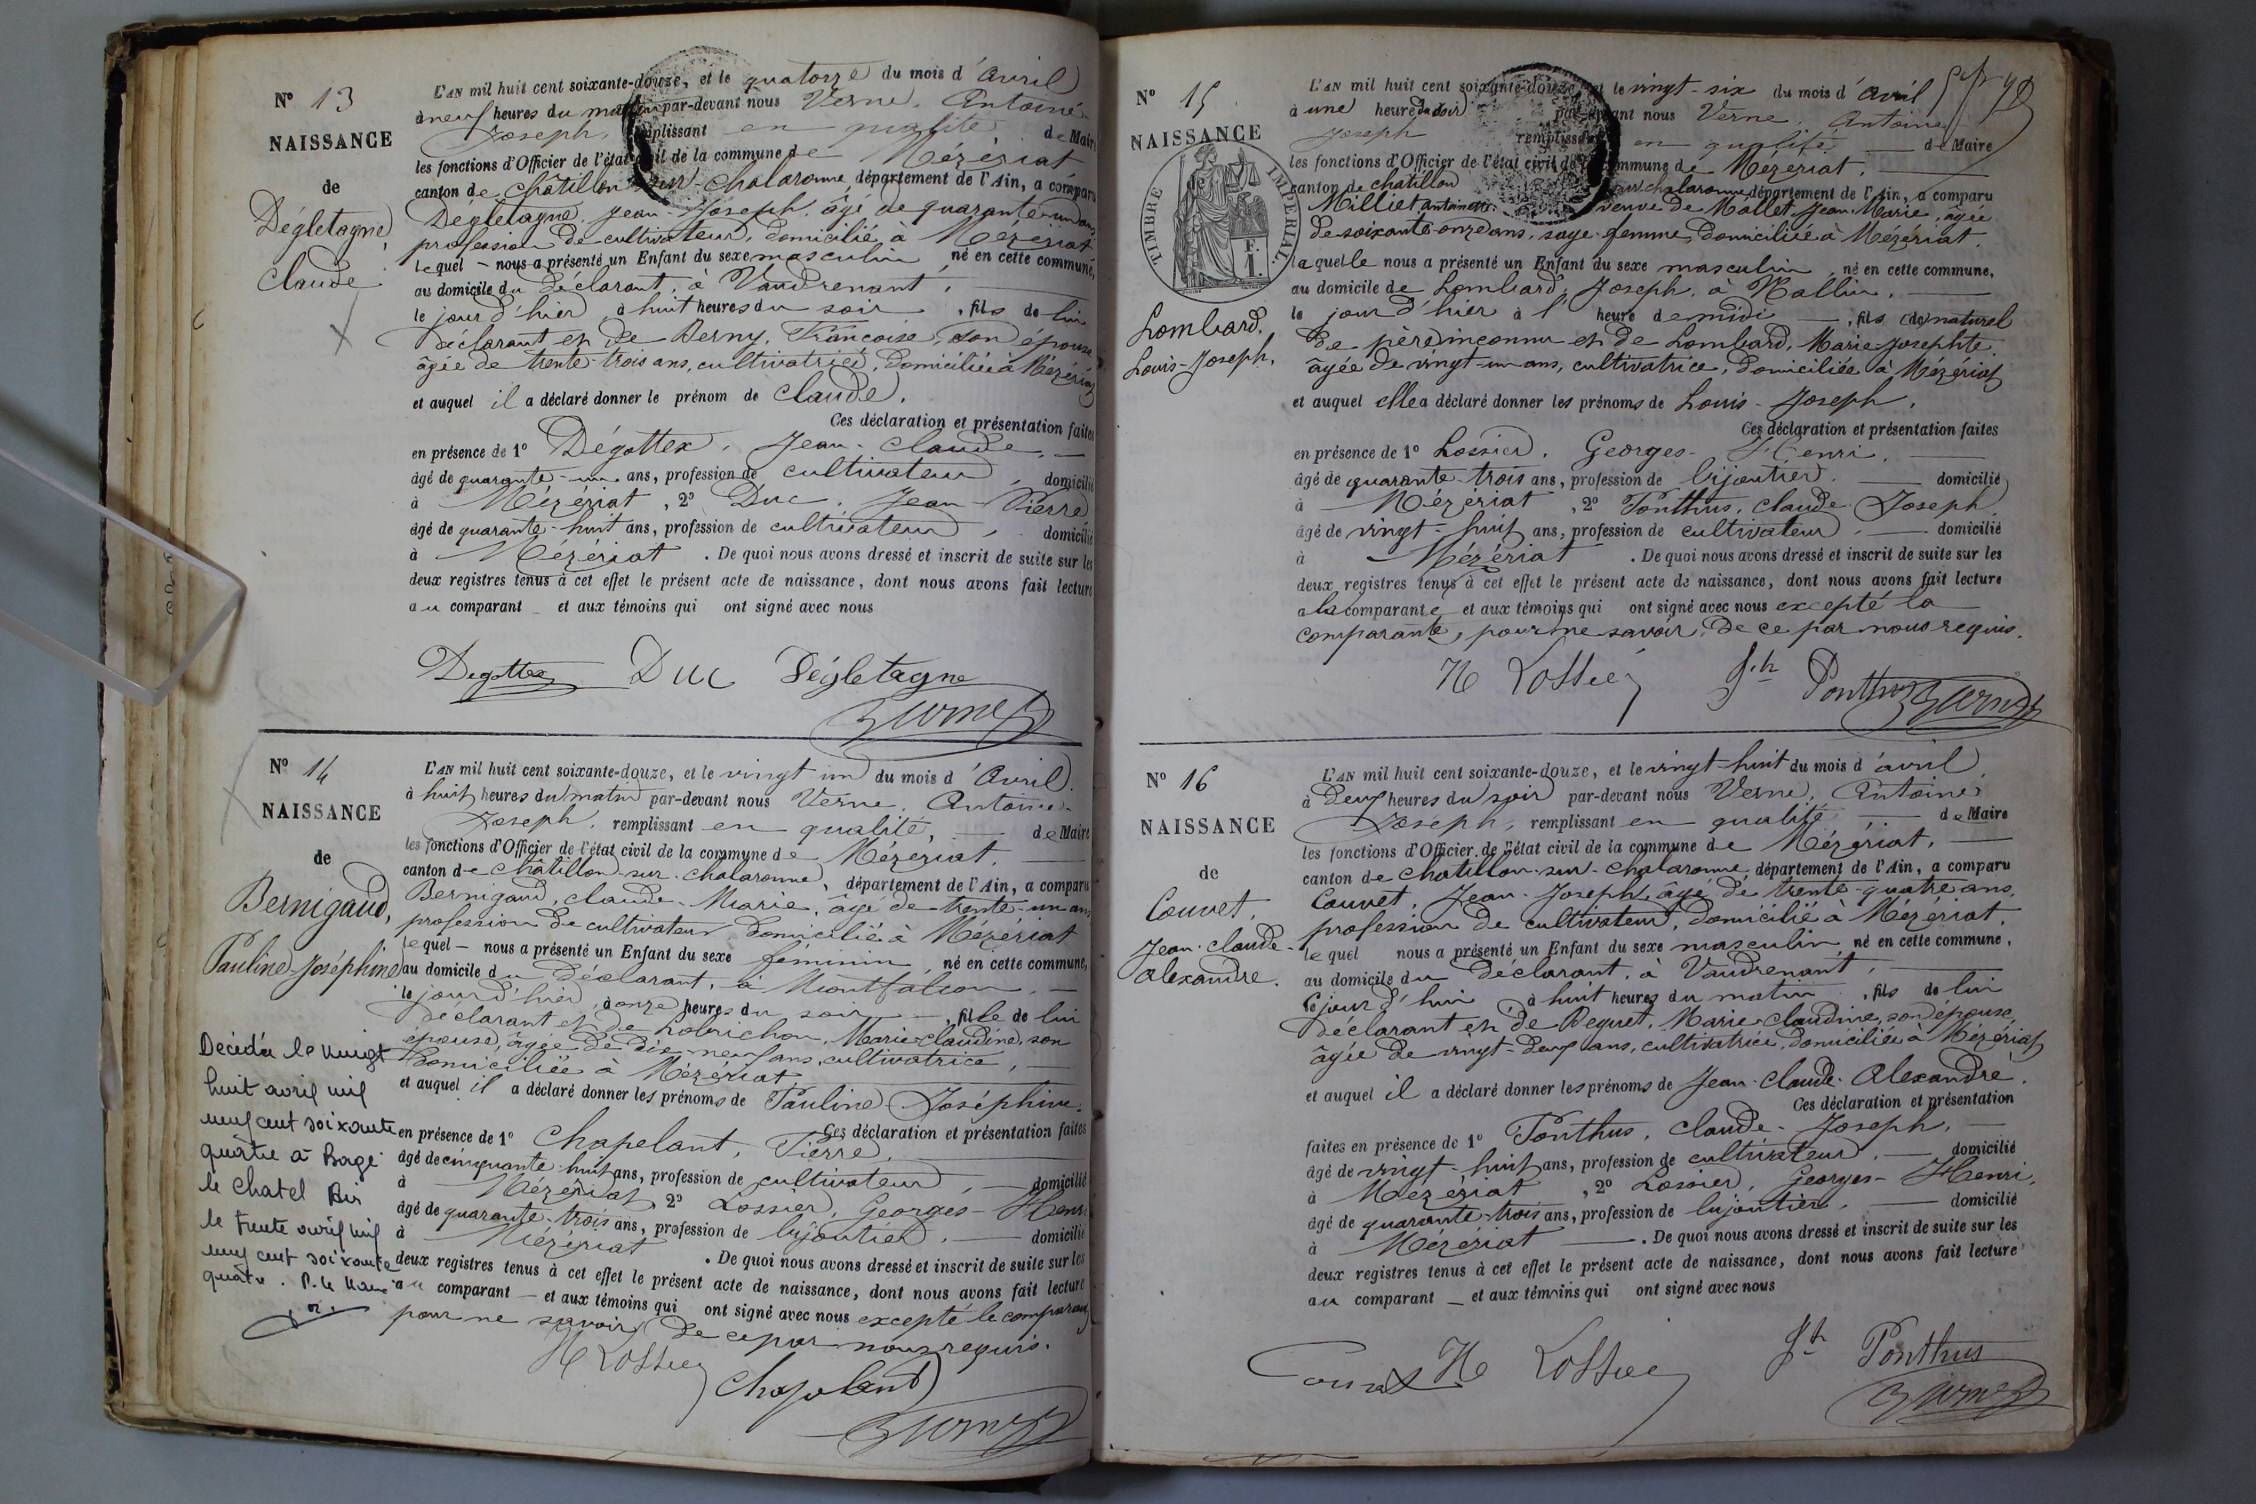 N° 13
NAISSANCE
de
Dégletagne,
Claude
L'AN mil huit cent soixante-douze, et le quatorze du mois d'Avril
à neuf heures du matin par-devant nous Verne, Antoine
Joseph, remplissant en qualité de Maire
les fonctions d'Officier de l'état civil de la commune de Mézériat
canton de Châtillon sur-Chalaronne, département de l'Ain, a comparu
Dégletagne, Jean-Joseph, âgé de quarante-un ans
profession de cultivateur, domicilié à Mézériat
lequel nous a présenté un Enfant du sexe masculin, né en cette commune,
au domicile du déclarant, à Vaudrenant,
le jour d'hier, à huit heures du soir, fils de lui
déclarant et de Berny, Françoise, son épouse
âgée de trente-trois ans, cultivatrice, domiciliée à Mézériat
et auquel il a déclaré donner le prénom de Claude.
Ces déclaration et présentation faites
en présence de 1° Dégottex, Jean-Claude,
âgé de quarante-un ans, profession de cultivateur, domicilié
à Mézériat, 2° Duc, Jean-Pierre
âgé de quarante-huit ans, profession de cultivateur, domicilié
à Mézériat. De quoi nous avons dressé et inscrit de suite sur les
deux registres tenus à cet effet le présent acte de naissance, dont nous avons fait lecture
au comparant et aux témoins qui ont signé avec nous
Degottex Duc Dégletagne
Verne
N° 14
NAISSANCE
de
Bernigaud,
Pauline-Joséphine
L'AN mil huit cent soixante-douze, et le vingt un du mois d'Avril
à huit heures du matin par-devant nous Verne, Antoine-
Joseph, remplissant en qualité, de Maire
les fonctions d'Officier de l'état civil de la commune de Mézériat,
canton de Châtillon-sur-Chalaronne, département de l'Ain, a comparu
Bernigaud, Claude-Marie, âgé de trente-un ans
profession de cultivateur domicilié à Mézériat
lequel nous a présenté un Enfant du sexe féminin, né en cette commune,
au domicile du déclarant, à Montfalcon,
le jour d'hier, à onze heures du soir, fille de lui
déclarant et de Lobrichon, Marie-Claudine, son
épouse, âgée de dix-neuf ans, cultivatrice,
domiciliée à Mézériat
et auquel il a déclaré donner les prénoms de Pauline Joséphine.
Ces déclaration et présentation faites
en présence de 1° Chapelant, Pierre,
âgé de cinquante-huit ans, profession de cultivateur, domicilié
à Mézériat, 2° Lossier, Georges-Henri
âgé de quarante-trois ans, profession de bijoutier, domicilié
à Mézériat. De quoi nous avons dressé et inscrit de suite sur les
deux registres tenus à cet effet le présent acte de naissance, dont nous avons fait lecture
au comparant et aux témoins qui ont signé avec nous excepté le comparant
pour ne savoir de ce par nous requis.
H Lossier
Chapelant
Verne
Décédée le vingt
huit avril mil
neuf cent soixante
quatre à Bagé
le Chatel Ain
le trente avril mil
neuf cent soixante
quatre. P. le Maire
N° 15
NAISSANCE
TIMBRE IMPÉRIAL
Lombard,
Louis-Joseph,
L'AN mil huit cent soixante-douze, et le vingt-six du mois d'avril
à une heure du soir par-devant nous Verne, Antoine
Joseph remplissant en qualité de Maire
les fonctions d'Officier de l'état civil de la commune de Mézériat,
canton de Châtillon sur chalaronne département de l'Ain, a comparu
Milliet antoinette, veuve de Mallet Jean-Marie, âgée
de soixante-onze ans, sage-femme, domiciliée à Mézériat.
laquelle nous a présenté un Enfant du sexe masculin, né en cette commune,
au domicile de Lombard, Joseph, à Mallin,
le jour d'hier à l'heure de midi, fils (de) naturel
de père inconnu et de Lombard, Marie-Josephte
âgée de vingt-un ans, cultivatrice, domiciliée à Mézériat
et auquel elle a déclaré donner les prénoms de Louis-Joseph,
Ces déclaration et présentation faites
en présence de 1° Lossier, Georges-Henri,
âgé de quarante-trois ans, profession de bijoutier, domicilié
à Mézériat, 2° Ponthus, Claude-Joseph,
âgé de vingt-huit ans, profession de cultivateur, domicilié
à Mézériat. De quoi nous avons dressé et inscrit de suite sur les
deux registres tenus à cet effet le présent acte de naissance, dont nous avons fait lecture
à la comparante et aux témoins qui ont signé avec nous excepté la
comparante, pour ne savoir, de ce par nous requis.
H Lossier Jh Ponthus Verne
N° 16
NAISSANCE
de
Couvet,
Jean-Claude-
Alexandre.
L'AN mil huit cent soixante-douze, et le vingt-huit du mois d'avril
à deux heures du soir par-devant nous Verne, Antoine
Joseph, remplissant en qualité de Maire
les fonctions d'Officier de l'état civil de la commune de Mézériat,
canton de Châtillon-sur-Chalaronne département de l'Ain, a comparu
Couvet, Jean-Joseph, âgé de trente-quatre ans,
profession de cultivateur, domicilié à Mézériat,
lequel nous a présenté un Enfant du sexe masculin, né en cette commune,
au domicile du déclarant, à Vaudrenant,
le jour d'hui à huit heures du matin, fils de lui
déclarant et de Pequet, Marie-Claudine, son épouse
âgée de vingt-deux ans, cultivatrice, domiciliée à Mézériat
et auquel il a déclaré donner les prénoms de Jean-Claude-Alexandre.
Ces déclaration et présentation
faites en présence de 1° Ponthus, Claude-Joseph,
âgé de vingt-huit ans, profession de cultivateur, domicilié
à Mézériat, 2° Lossier, Georges-Henri,
âgé de quarante-trois ans, profession de bijoutier, domicilié
à Mézériat. De quoi nous avons dressé et inscrit de suite sur les
deux registres tenus à cet effet le présent acte de naissance, dont nous avons fait lecture
au comparant et aux témoins qui ont signé avec nous
Couvet H Lossier Jh Ponthus
Verne